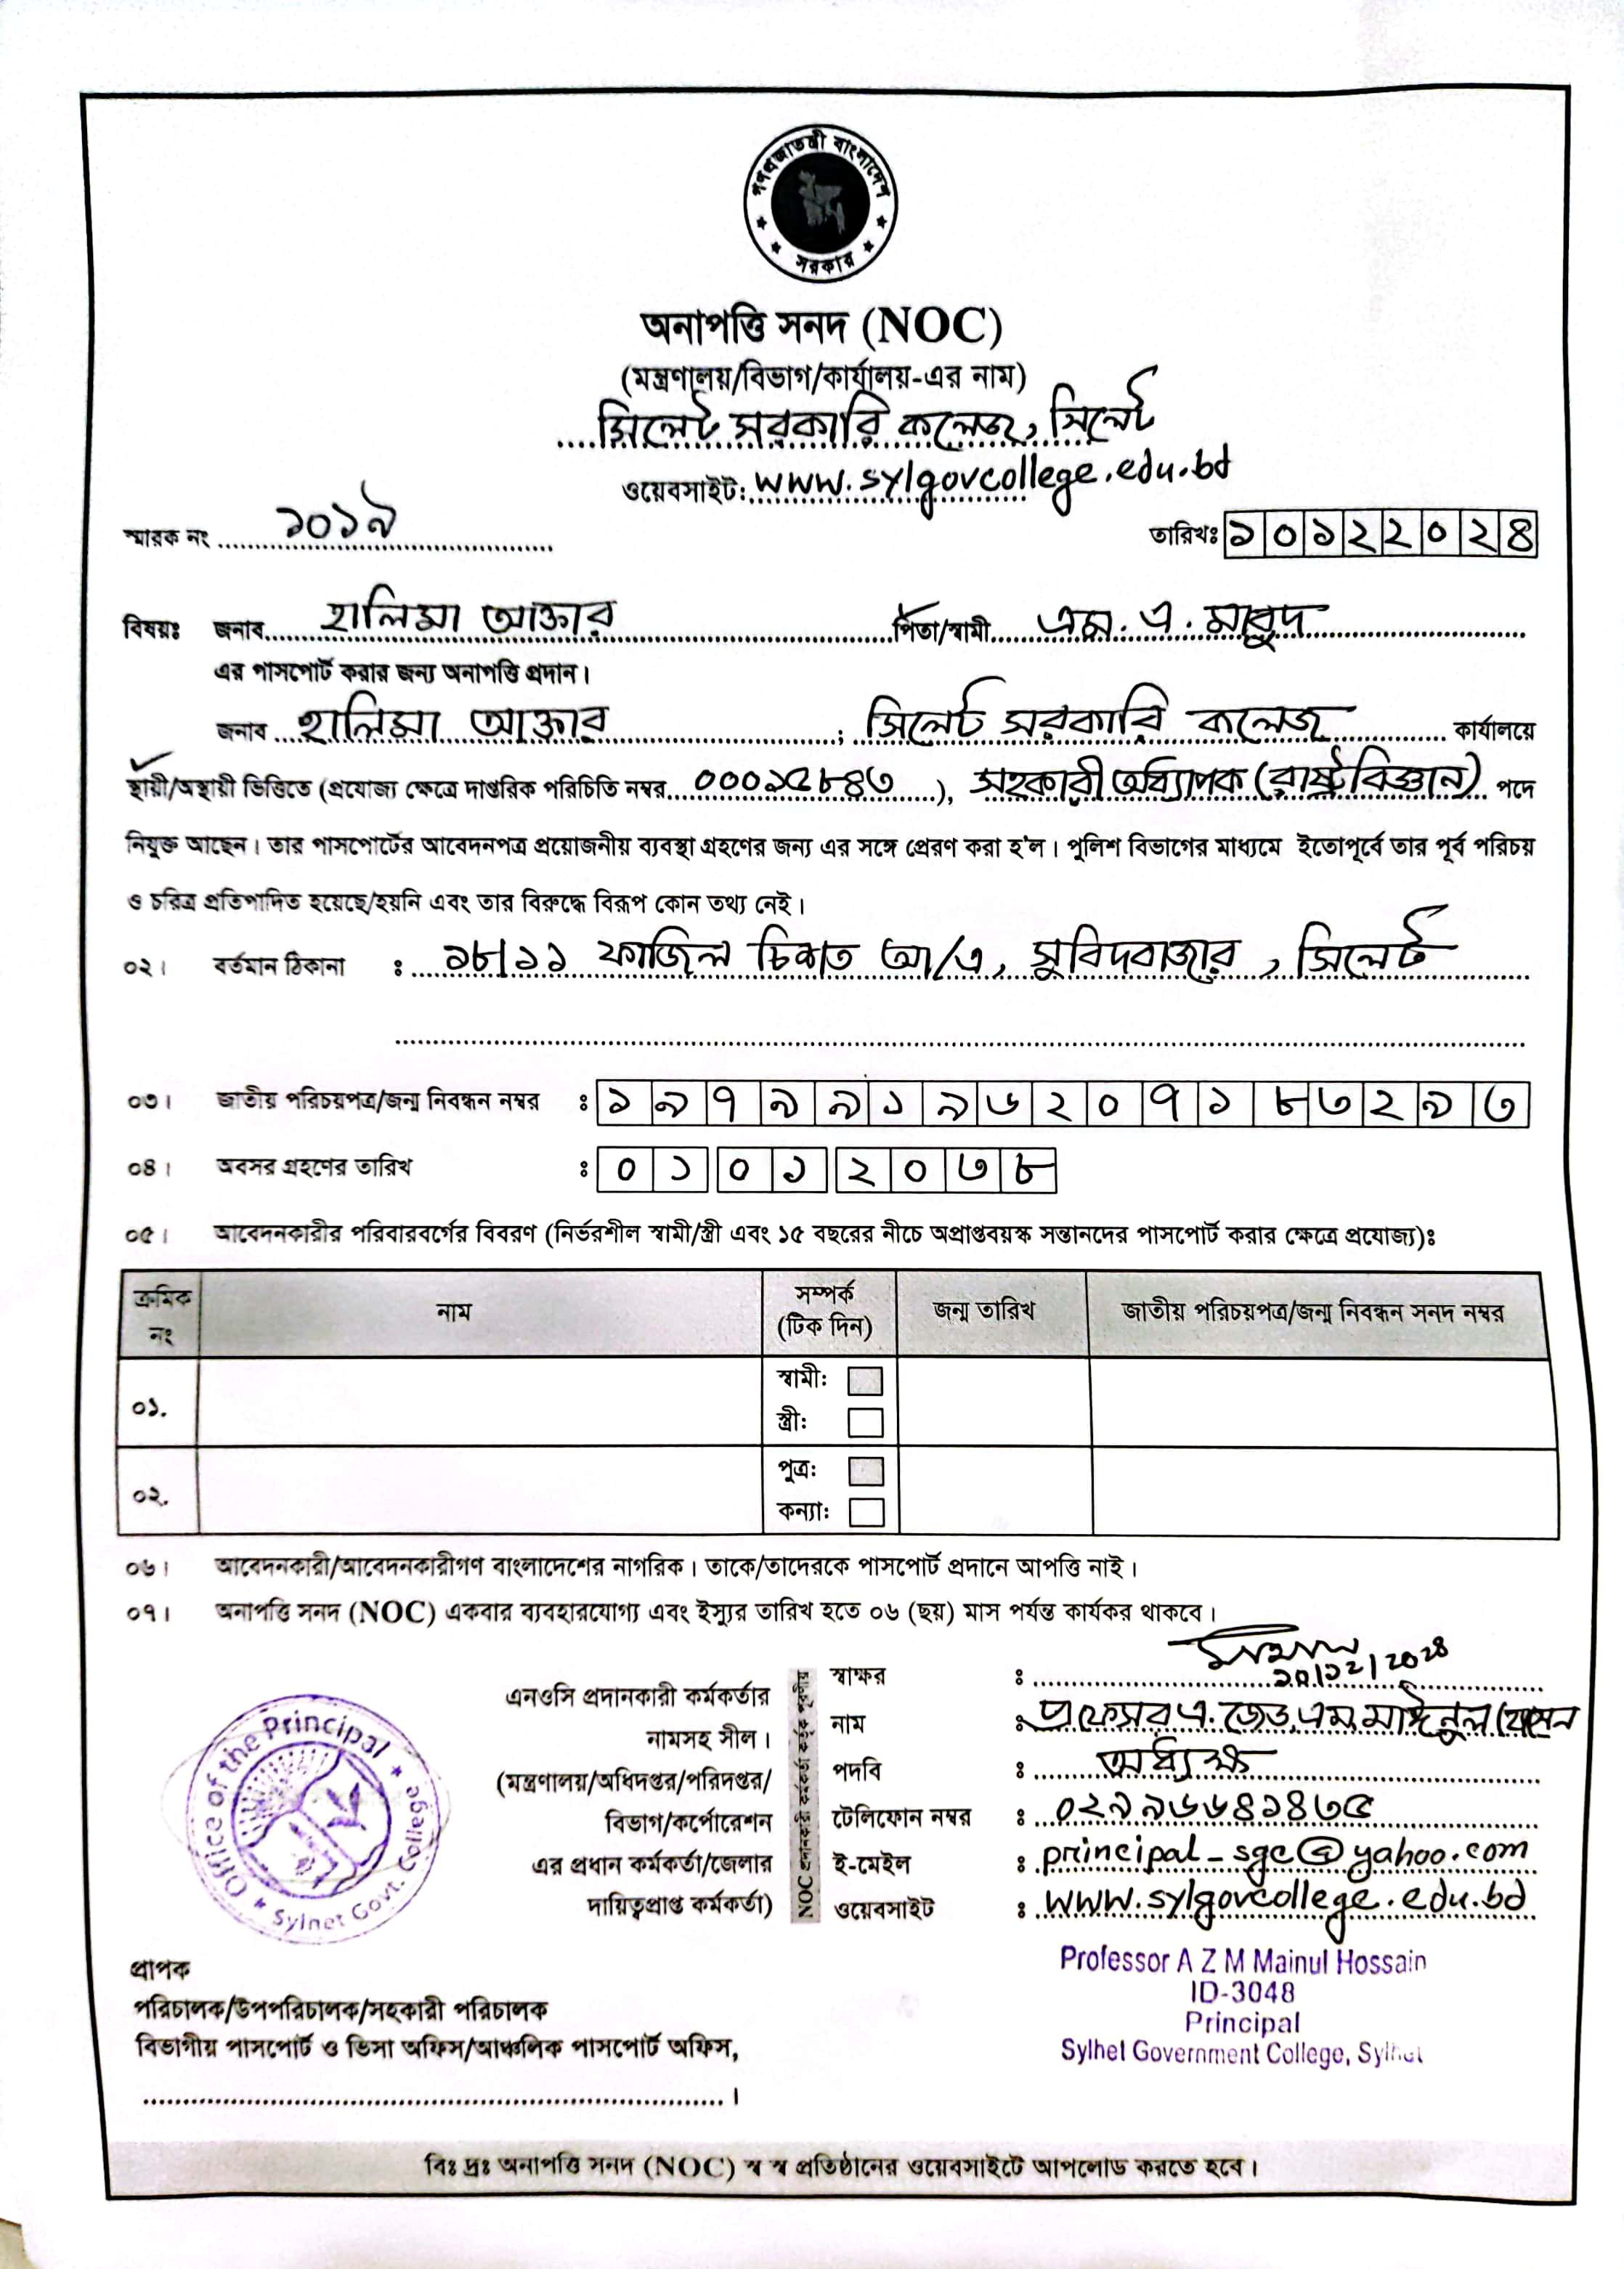 গণপ্রজাতন্ত্রী বাংলাদেশ
সরকার
অনাপত্তি সনদ (NOC)
(মন্ত্রণালয়/বিভাগ/কার্যালয়-এর নাম)
সিলেট সরকারি কলেজ, সিলেট
ওয়েবসাইট: www.sylgovcollege.edu.bd
স্মারক নং ১০১৯ তারিখঃ ১০১২২০২৪
বিষয়ঃ জনাব হালিমা আক্তার পিতা/স্বামী এম. এ. মাবুদ
এর পাসপোর্ট করার জন্য অনাপত্তি প্রদান।
জনাব হালিমা আক্তার ; সিলেট সরকারি কলেজ কার্যালয়ে
স্থায়ী/অস্থায়ী ভিত্তিতে (প্রযোজ্য ক্ষেত্রে দাপ্তরিক পরিচিতি নম্বর ০০০১৫৮৪৩), সহকারী অধ্যাপক (রাষ্ট্রবিজ্ঞান) পদে
নিযুক্ত আছেন। তার পাসপোর্টের আবেদনপত্র প্রয়োজনীয় ব্যবস্থা গ্রহণের জন্য এর সঙ্গে প্রেরণ করা হ'ল। পুলিশ বিভাগের মাধ্যমে ইতোপূর্বে তার পূর্ব পরিচয়
ও চরিত্র প্রতিপাদিত হয়েছে/হয়নি এবং তার বিরুদ্ধে বিরূপ কোন তথ্য নেই।
০২। বর্তমান ঠিকানা : ১৮/১১ ফাজিল চিশত আ/এ, সুবিদবাজার, সিলেট
০৩। জাতীয় পরিচয়পত্র/জন্ম নিবন্ধন নম্বর ঃ ১৯৭৯৯১৯৬২০৭১৮৩২৯৩
০৪। অবসর গ্রহণের তারিখ ঃ ০১ ০১ ২০৩৮
০৫। আবেদনকারীর পরিবারবর্গের বিবরণ (নির্ভরশীল স্বামী/স্ত্রী এবং ১৫ বছরের নীচে অপ্রাপ্তবয়স্ক সন্তানদের পাসপোর্ট করার ক্ষেত্রে প্রযোজ্য)ঃ
ক্রমিক নং নাম সম্পর্ক (টিক দিন) জন্ম তারিখ জাতীয় পরিচয়পত্র/জন্ম নিবন্ধন সনদ নম্বর
০১. স্বামী:
স্ত্রী:
০২. পুত্র:
কন্যা:
০৬। আবেদনকারী/আবেদনকারীগণ বাংলাদেশের নাগরিক। তাকে/তাদেরকে পাসপোর্ট প্রদানে আপত্তি নাই।
০৭। অনাপত্তি সনদ (NOC) একবার ব্যবহারযোগ্য এবং ইস্যুর তারিখ হতে ০৬ (ছয়) মাস পর্যন্ত কার্যকর থাকবে।
Office of the Principal
Sylhet Govt. College
এনওসি প্রদানকারী কর্মকর্তার
নামসহ সীল।
(মন্ত্রণালয়/অধিদপ্তর/পরিদপ্তর/
বিভাগ/কর্পোরেশন
এর প্রধান কর্মকর্তা/জেলার
দায়িত্বপ্রাপ্ত কর্মকর্তা)
NOC প্রদানকারী কর্মকর্তা কর্তৃক পূরণীয়
স্বাক্ষর ঃ ১০/১২/২০২৪
নাম ঃ প্রফেসর এ. জেড. এম. মাঈনুল হোসেন
পদবি ঃ অধ্যক্ষ
টেলিফোন নম্বর ঃ ০২৯৯৬৬৪১৪৩৫
ই-মেইল ঃ principal_sgc@yahoo.com
ওয়েবসাইট ঃ www.sylgovcollege.edu.bd
Professor A Z M Mainul Hossain
ID-3048
Principal
Sylhet Government College, Sylhet
প্রাপক
পরিচালক/উপপরিচালক/সহকারী পরিচালক
বিভাগীয় পাসপোর্ট ও ভিসা অফিস/আঞ্চলিক পাসপোর্ট অফিস,
।
বিঃ দ্রঃ অনাপত্তি সনদ (NOC) স্ব স্ব প্রতিষ্ঠানের ওয়েবসাইটে আপলোড করতে হবে।